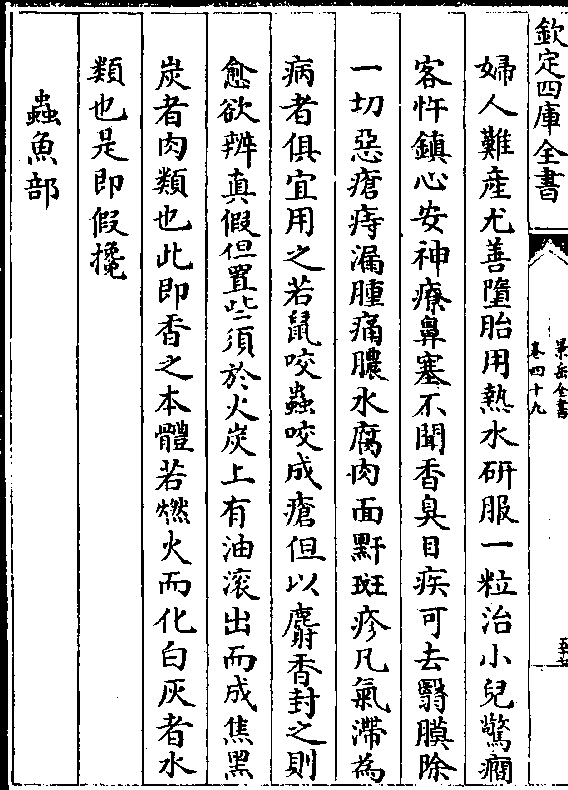 欽定四庫全書
景岳全書
卷四十九
婦人難產尤善墮胎用熱水研服一粒治小兒驚癇
客忤鎮心安神療鼻塞不聞香臭目疾可去翳膜除
一切惡瘡痔漏腫痛膿水腐肉面䵟斑疹凡氣滯為
病者俱宜用之若鼠咬蟲咬成瘡但以麝香封之則
愈欲辨真假但置些須於火炭上有油滾出而成焦黑
炭者肉類也此即香之本體若燃火而化白灰者水
類也是即假攙
蟲魚部